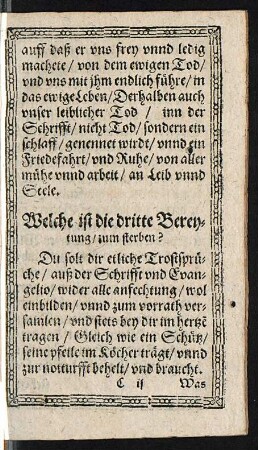 auff daß er vns frey vnnd ledig
machete/ von dem ewigen Tod/
vnd vns mit jhm endlich führe/ in
das ewige Leben/ Derhalben auch
vnser leiblicher Tod / inn der
Schrifft/ nicht Tod/ sondern ein
schlaff/ genennet wirdt/ vnnd ein
Friedefahrt/ vnd Ruhe/ von aller
mühe vnnd arbeit/ an Leib vnnd
Seele.
Welche ist die dritte Berey-
tung/ zum sterben?
Du solt dir etliche Trostsprü-
che/ auß der Schrifft vnd Euan-
gelio/ wider alle anfechtung/ wol
einbilden/ vnnd zum vorrath ver-
samlen/ vnd stets bey dir im hertzē
tragen/ Gleich wie ein Schütz/
seine pfeile im Köcher trägt/ vnnd
zur notturfft behelt/ vnd braucht.
C ij Was